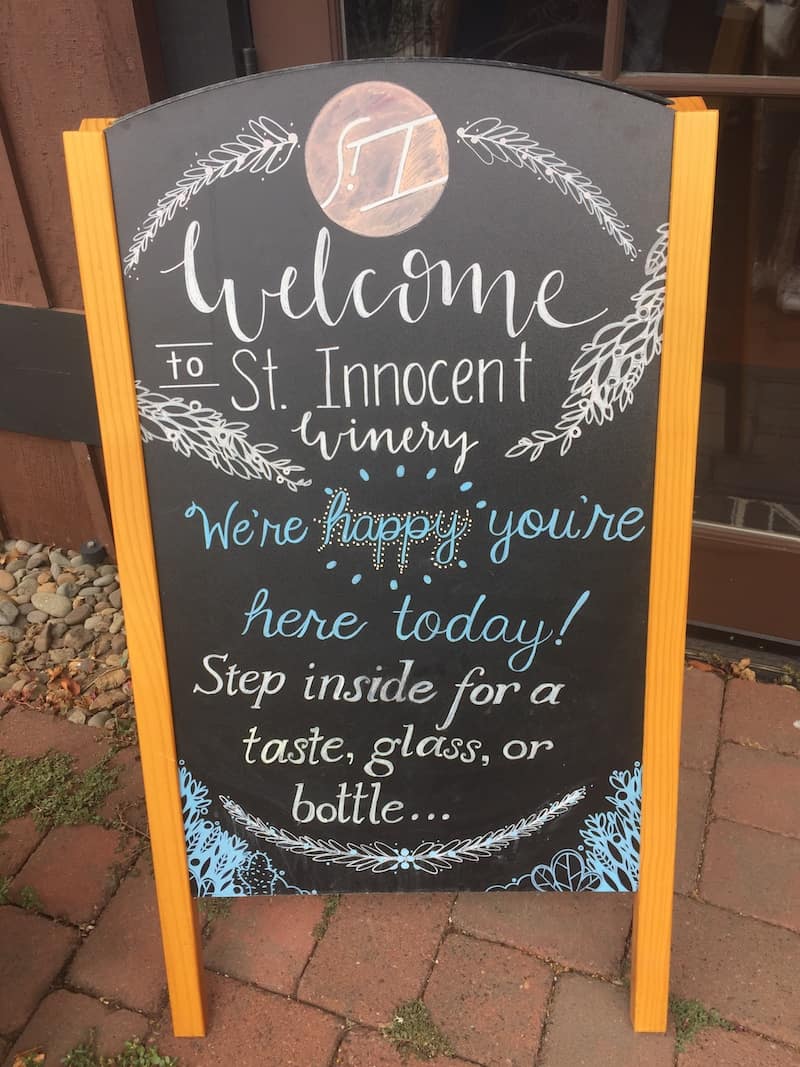 St. I
Welcome
to St. Innocent
Winery
We're happy you're
here today!
Step inside for a
taste, glass, or
bottle...